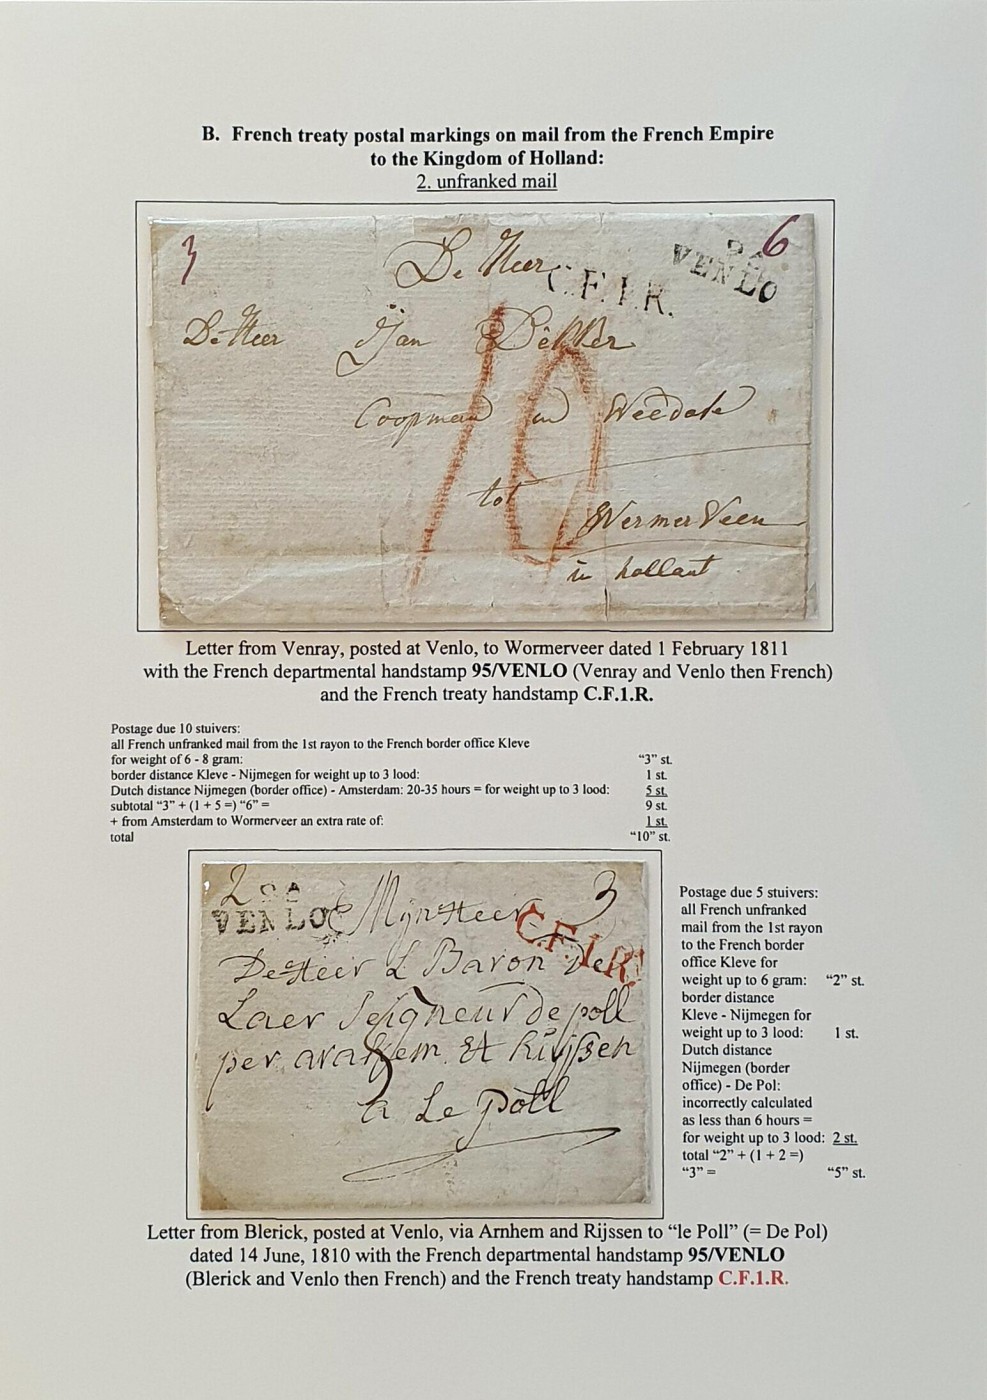 B. French treaty postal markings on mail from the French Empire
to the Kingdom of Holland:
2. unfranked mail
3
6
De Heer
C.F.1.R.
VENLO
De Heer Jan Dekker
Coopman in
10
tot
WermerVeen
in hollant
Letter from Venray, posted at Venlo, to Wormerveer dated 1 February 1811
with the French departmental handstamp 95/VENLO (Venray and Venlo then French)
and the French treaty handstamp C.F.1.R.
Postage due 10 stuivers:
all French unfranked mail from the 1st rayon to the French border office Kleve
for weight of 6 - 8 gram: “3” st.
border distance Kleve - Nijmegen for weight up to 3 lood: 1 st.
Dutch distance Nijmegen (border office) - Amsterdam: 20-35 hours = for weight up to 3 lood: 5 st.
subtotal “3” + (1 + 5 =) “6” = 9 st.
+ from Amsterdam to Wormerveer an extra rate of: 1 st.
total “10” st.
2
3
VENLO
Mijn Heer
C.F.1.R.
De Heer L Baron De
Laer Seigneur de poll
per arahem et Rijssen
5
a Le poll
Postage due 5 stuivers:
all French unfranked
mail from the 1st rayon
to the French border
office Kleve for
weight up to 6 gram: “2” st.
border distance
Kleve - Nijmegen for
weight up to 3 lood: 1 st.
Dutch distance
Nijmegen (border
office) - De Pol:
incorrectly calculated
as less than 6 hours =
for weight up to 3 lood: 2 st.
total “2” + (1 + 2 =)
“3” = “5” st.
Letter from Blerick, posted at Venlo, via Arnhem and Rijssen to “le Poll” (= De Pol)
dated 14 June, 1810 with the French departmental handstamp 95/VENLO
(Blerick and Venlo then French) and the French treaty handstamp C.F.1.R.